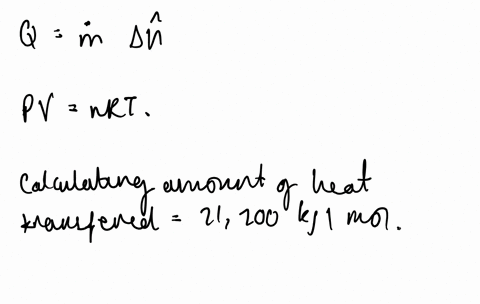 Q = ṁ Δn̂
PV = nRT.
Calculating amount of heat
transferred = 21,200 kj/mol.